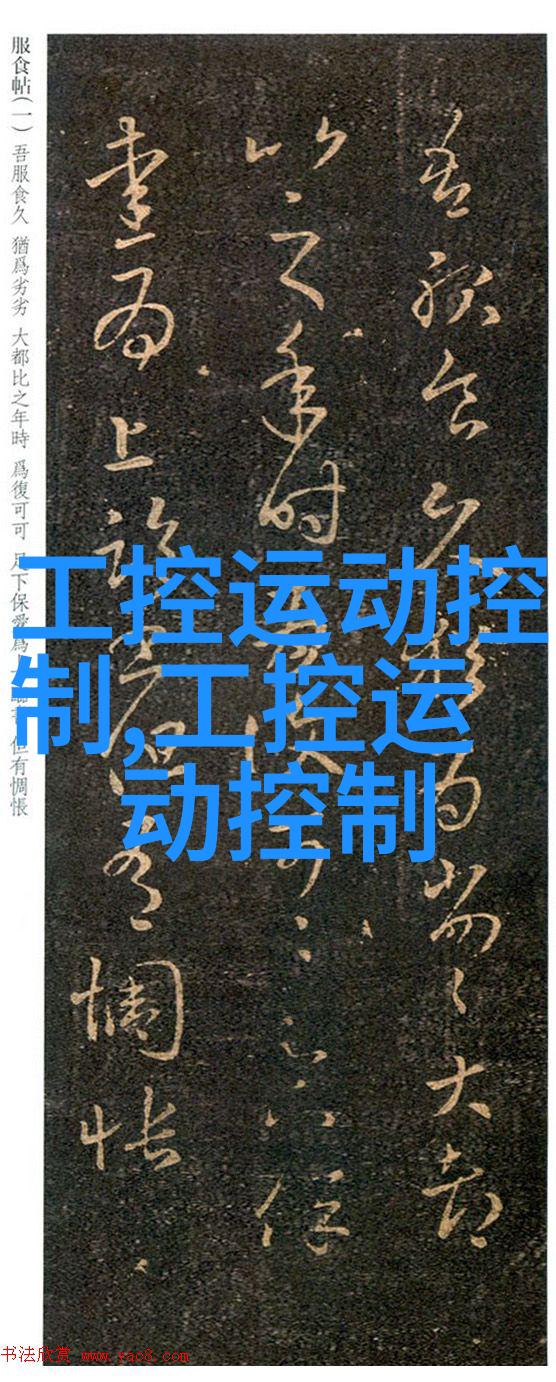 服食帖(一) 吾服食久 猶爲劣劣 大都比之年時 爲復可可 足下保愛爲上 臨書但有惆悵
吾服食久猶爲劣劣大都
比之年時爲復可可足下保
愛爲上臨書但有惆悵
工控运动控
制,工控运
动控制
书法欣赏 www.yac8.com